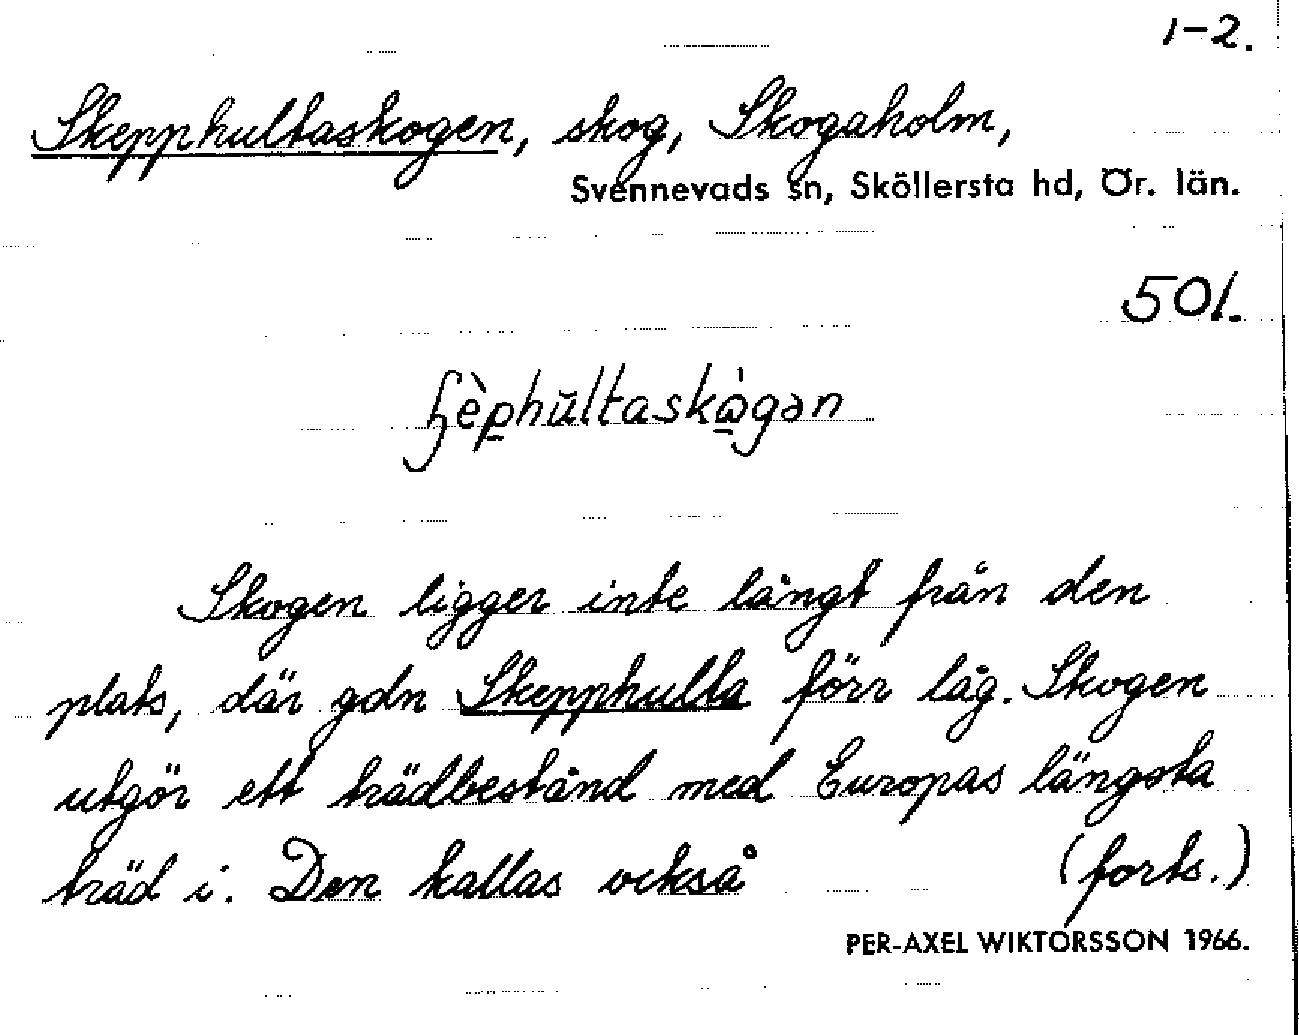 1-2.
Skepphultaskogen, skog, Skogaholm,
Svennevads sn, Sköllersta hd, Ör. län.
501.
Skogen ligger inte långt från den
plats, där gdn Skepphulta förr låg. Skogen
utgör ett trädbestånd med Europas längsta
träd i. Den kallas också (forts.)
PER-AXEL WIKTORSSON 1966.